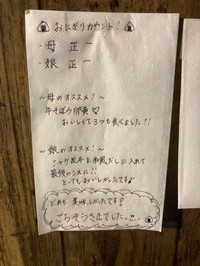 おにぎりカウント!
・母 正一
・娘 正一
～母のオススメ!～
牛そぼろ卵黄♡
おいしくて3つも食べました!!
～娘のオススメ!～
シャケ昆布を和風だしに入れて
最後のシメに!!
とってもおいしかったです♪
どれも美味しかったです!
ごちそうさまでした。